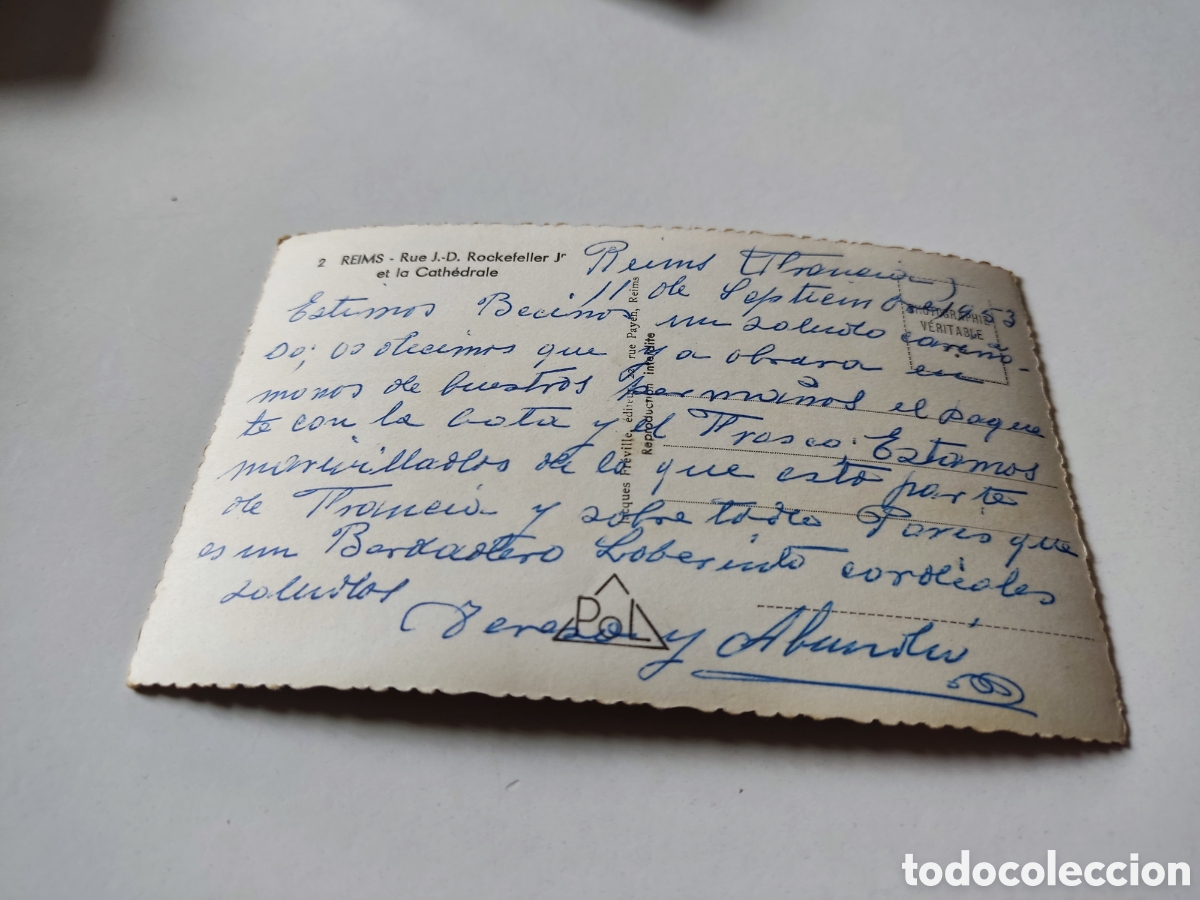 2 REIMS - Rue J.-D. Rockefeller Jr
et la Cathédrale
Reims (Francia)
11 de Septiembre 1953
Estimos Becinos un saludo cariño-
so; os decimos que ya obrara en
manos de buestros hermaños el paque
te con la bota y el Frasco; Estamos
marivillados de lo que esto parte
de Francia y sobre todo Paris que
es un Berdadero Loberinto cordiales
saludos
Teresa y Abundio
PHOTOGRAPHIE
VÉRITABLE
Jacques Fréville, éditeur, rue Payen, Reims
Reproduction interdite
Pol
todocoleccion